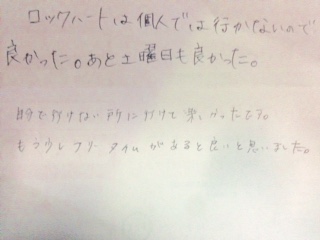 ロックハートは個人では行かないので
良かった。あと土曜日も良かった。
自分で行けない所に行けて楽しかったです。
もう少しフリータイムがあると良いと思いました。